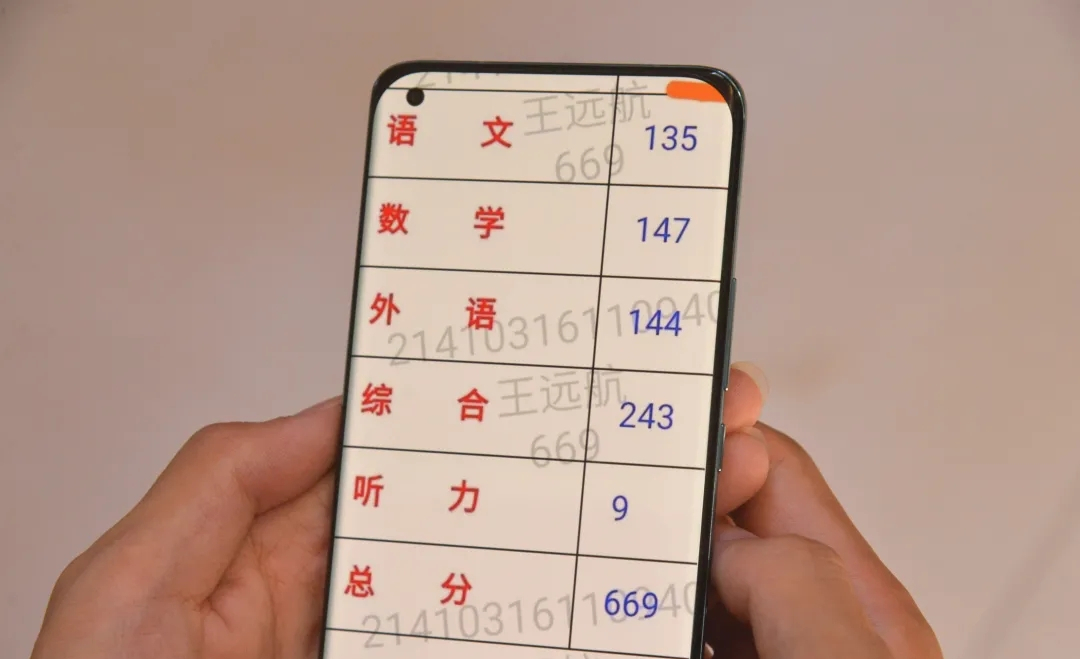 王远航
语 文 135
669
数 学 147
外 语 144
21410316110940
综 合 243
王远航
669
听 力 9
总 分 669
21410316110940